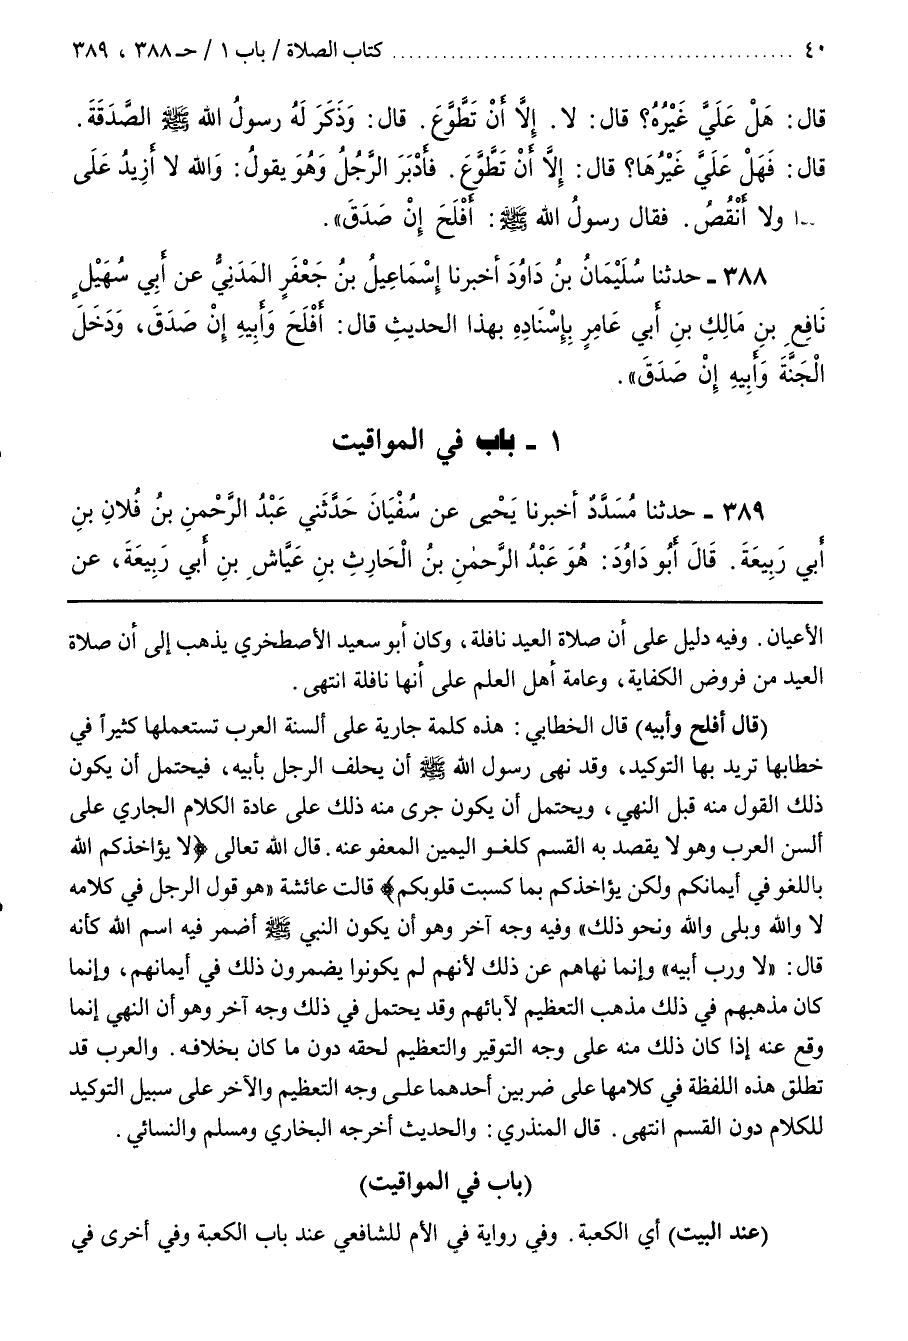 ٤٠ ........ كتاب الصلاة / باب ١ / حـ ٣٨٨ ، ٣٨٩
قال: هَلْ عَلَيَّ غَيْرُهُ؟ قال: لا. إِلَّا أَنْ تَطَّوَّعَ. قال: وَذَكَرَ لَهُ رسولُ الله ﷺ الصَّدَقَةَ.
قال: فَهَلْ عَلَيَّ غَيْرُهَا؟ قال: إِلَّا أَنْ تَطَّوَّعَ. فَأَدْبَرَ الرَّجُلُ وَهُوَ يقولُ: وَالله لا أَزِيدُ عَلَى
ولا أَنْقُصُ. فقال رسولُ الله ﷺ: أَفْلَحَ إِنْ صَدَقَ».
٣٨٨ ـ حدثنا سُلَيْمَانُ بنُ دَاوُدَ أخبرنا إِسْمَاعِيلُ بنُ جَعْفَرٍ المَدَنِيُّ عن أَبِي سُهَيْلٍ
نَافِعِ بنِ مَالِكِ بنِ أَبي عَامِرٍ بِإِسْنَادِهِ بهذا الحديثِ قال: أَفْلَحَ وَأَبِيهِ إِنْ صَدَقَ، وَدَخَلَ
الْجَنَّةَ وَأَبِيهِ إِنْ صَدَقَ».
١ ـ باب في المواقيت
٣٨٩ ـ حدثنا مُسَدَّدٌ أخبرنا يَحْيى عن سُفْيَانَ حَدَّثَني عَبْدُ الرَّحْمنِ بنُ فُلانِ بنِ
أبي رَبِيعَةَ. قَالَ أَبُو دَاوُدَ: هُوَ عَبْدُ الرحمٰنِ بنُ الْحَارِثِ بنِ عَيَّاشِ بنِ أَبي رَبِيعَةَ، عن
الأعيان. وفيه دليل على أن صلاة العيد نافلة، وكان أبو سعيد الأصطخري يذهب إلى أن صلاة
العيد من فروض الكفاية، وعامة أهل العلم على أنها نافلة انتهى.
(قال أفلح وأبيه) قال الخطابي: هذه كلمة جارية على ألسنة العرب تستعملها كثيراً في
خطابها تريد بها التوكيد، وقد نهى رسول الله ﷺ أن يحلف الرجل بأبيه، فيحتمل أن يكون
ذلك القول منه قبل النهي، ويحتمل أن يكون جرى منه ذلك على عادة الكلام الجاري على
ألسن العرب وهو لا يقصد به القسم كلغو اليمين المعفو عنه. قال الله تعالى ﴿لا يؤاخذكم الله
باللغو في أيمانكم ولكن يؤاخذكم بما كسبت قلوبكم﴾ قالت عائشة «هو قول الرجل في كلامه
لا والله وبلى والله ونحو ذلك» وفيه وجه آخر وهو أن يكون النبي ﷺ أضمر فيه اسم الله كأنه
قال: «لا ورب أبيه» وإنما نهاهم عن ذلك لأنهم لم يكونوا يضمرون ذلك في أيمانهم، وإنما
كان مذهبهم في ذلك مذهب التعظيم لآبائهم وقد يحتمل في ذلك وجه آخر وهو أن النهي إنما
وقع عنه إذا كان ذلك منه على وجه التوقير والتعظيم لحقه دون ما كان بخلافه. والعرب قد
تطلق هذه اللفظة في كلامها على ضربين أحدهما على وجه التعظيم والآخر على سبيل التوكيد
للكلام دون القسم انتهى. قال المنذري: والحديث أخرجه البخاري ومسلم والنسائي.
(باب في المواقيت)
(عند البيت) أي الكعبة. وفي رواية في الأم للشافعي عند باب الكعبة وفي أخرى في